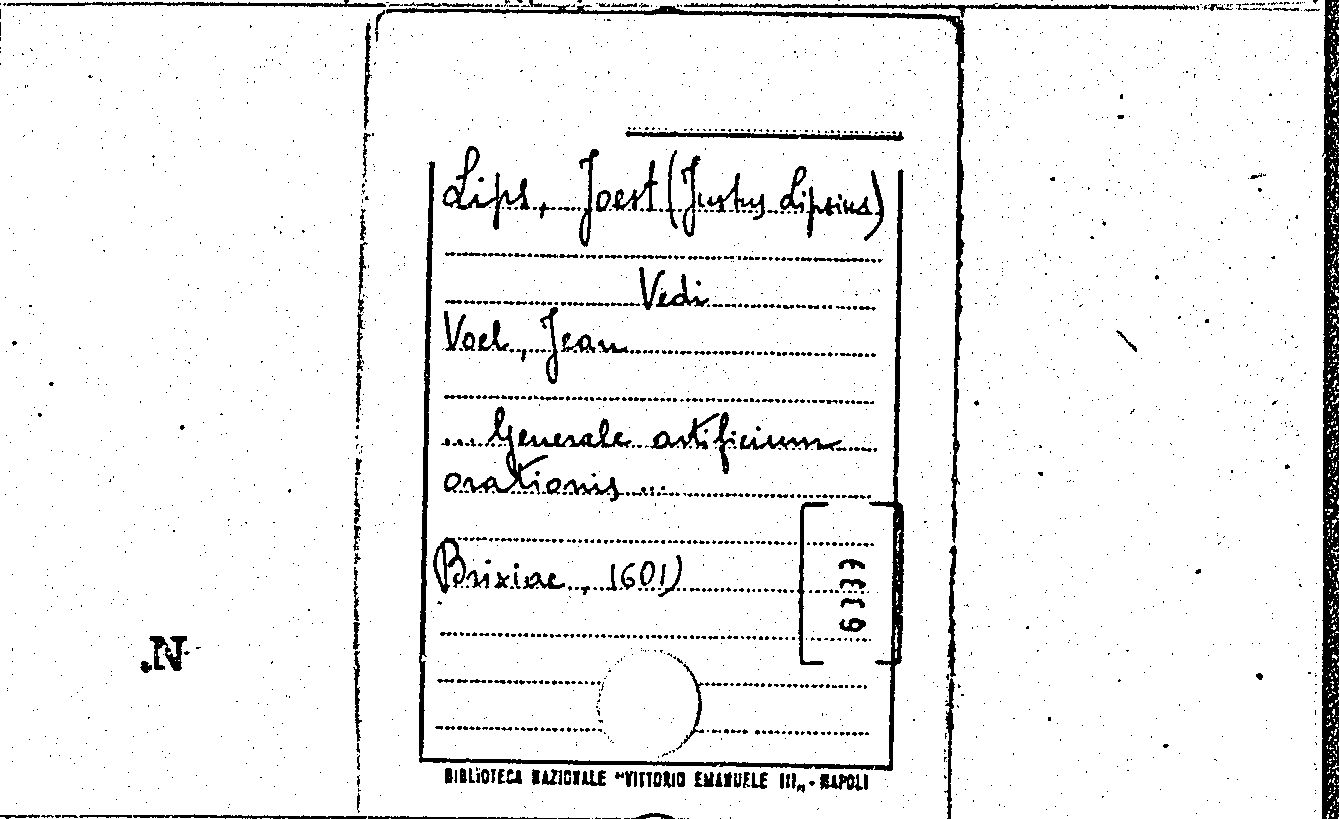 Lips, Joest (Justus Lipsius)
Vedi
Voel, Jean
... Generale artificium
orationis ...
Brixiae, 1601)
.N
BIBLIOTECA NAZIONALE "VITTORIO EMANUELE III„ - NAPOLI